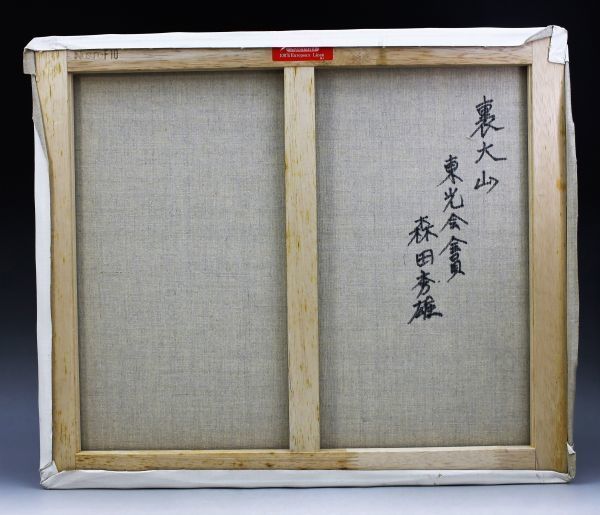 裏大山
東光会會員
森田秀雄
100% European Linen
F10